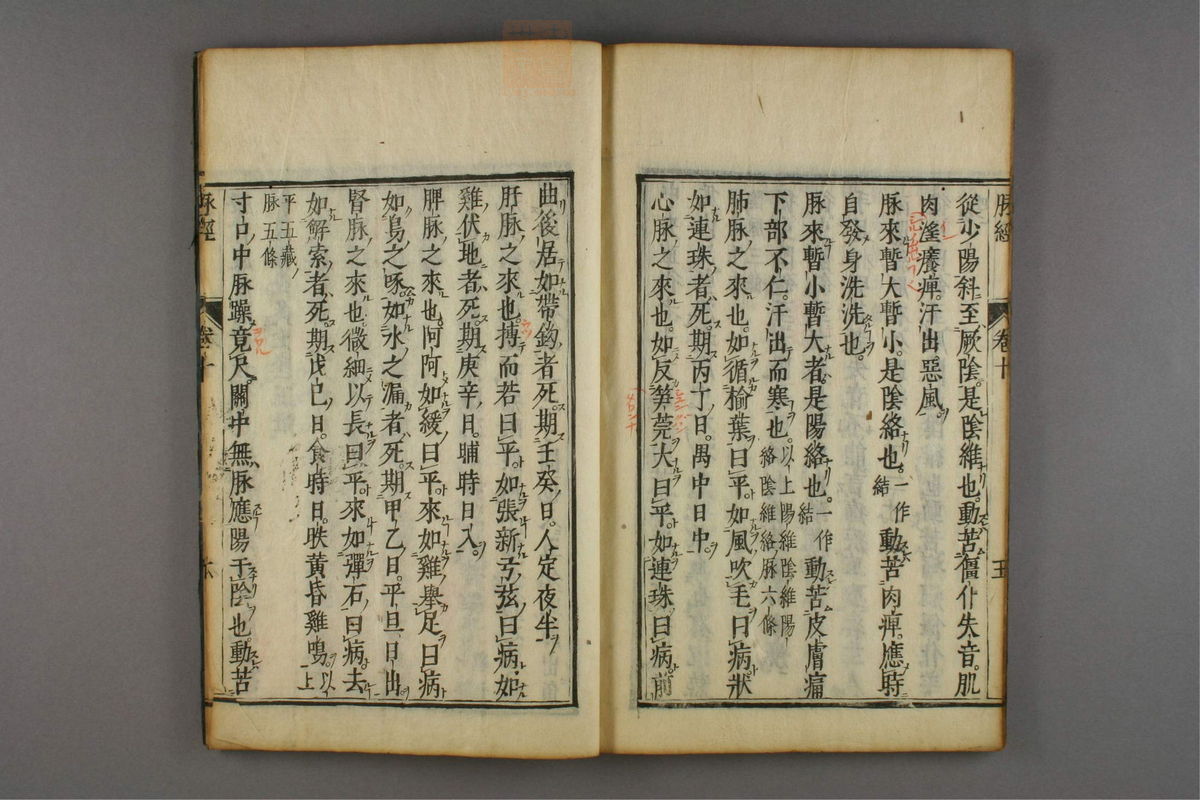 脉經 卷十 五
從少陽斜至厥陰是陰維也動苦僵仆失音肌
肉淫癢痺汗出惡風
脉來暫大暫小是陰絡也一作結動苦肉痺應時
自發身洗洗也
脉來暫小暫大者是陽絡也一作結動苦皮膚痛
下部不仁汗出而寒也以上陽維陰維陽絡陰維絡脉六條
肺脉之來也如循榆葉曰平如風吹毛曰病狀
如連珠者死期丙丁日禺中日中
心脉之來也如反笋莞大曰平如連珠曰病前
曲後居如帶鉤者死期壬癸日人定夜半
肝脉之來也搏而若曰平如張新弓弦曰病如
雞伏地者死期庚辛日晡時日入
脾脉之來也阿阿如緩曰平來如雞舉足曰病
如鳥之啄如水之漏者死期甲乙日平旦日出
腎脉之來也微細以長曰平來如彈石曰病去
如解索者死期戊己日食時日昳黃昏雞鳴以上
平五藏脉五條
寸口中脉躁竟尺關中無脉應陽干陰也動苦
脉經 卷十